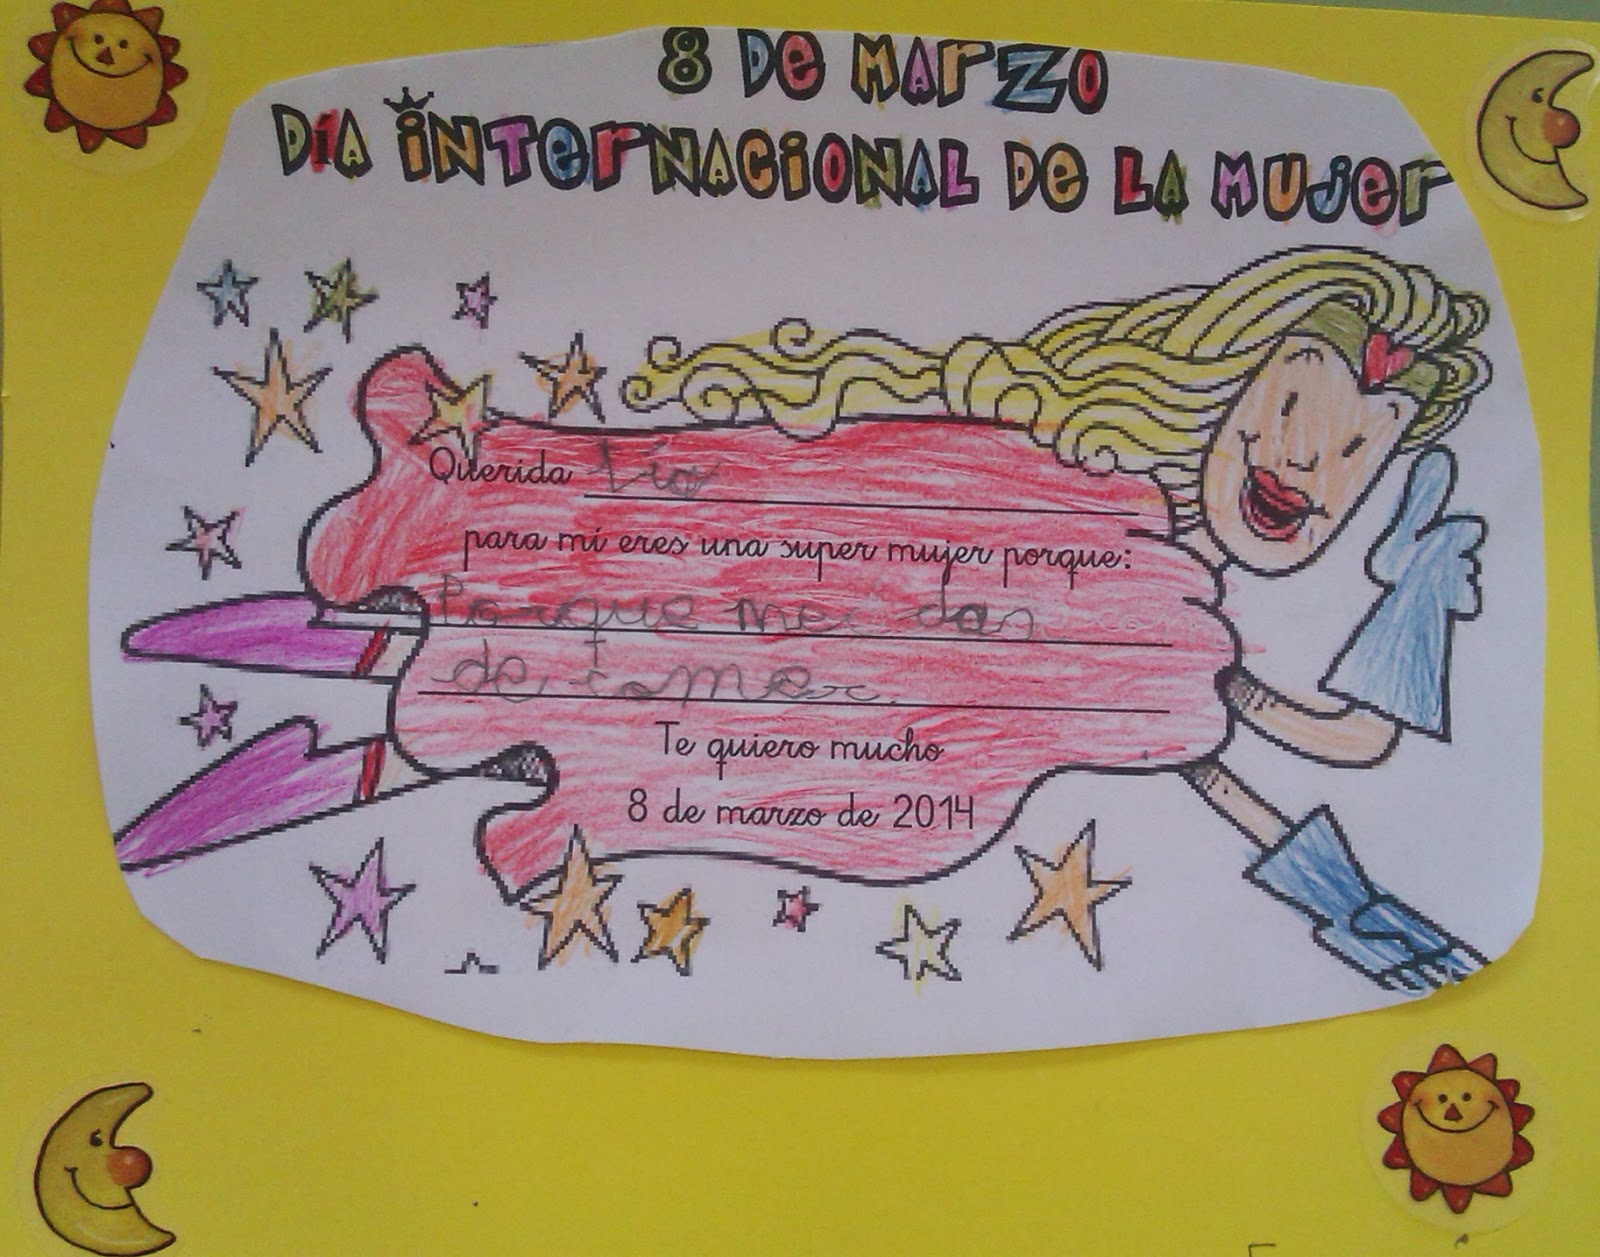 8 DE MARZO
DIA INTERNACIONAL DE LA MUJER
Querida
para mí eres una super mujer porque:
Porque me das
de comer.
Te quiero mucho
8 de marzo de 2014